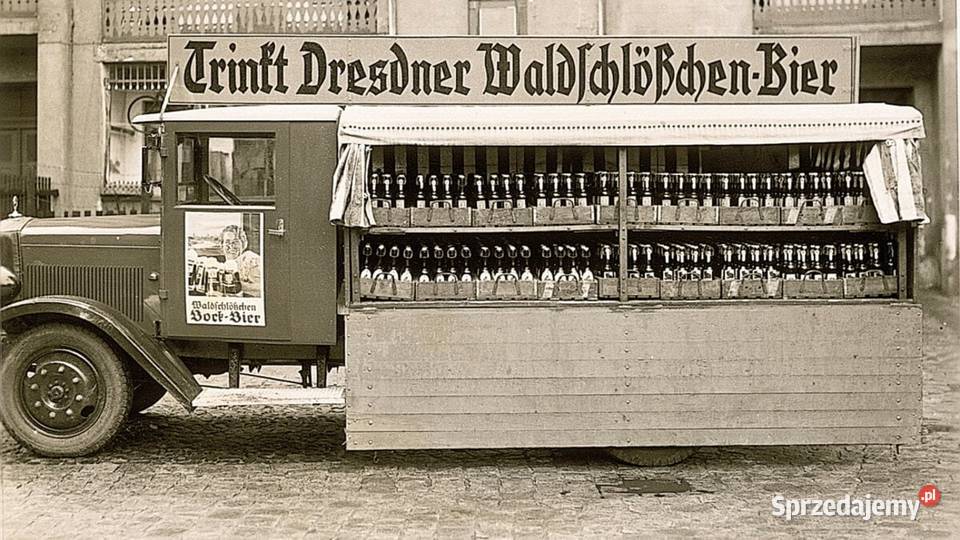 Trinkt Dresdner Waldſchlößchen-Bier
Waldſchlößchen
Bock-Bier
Sprzedajemy.pl